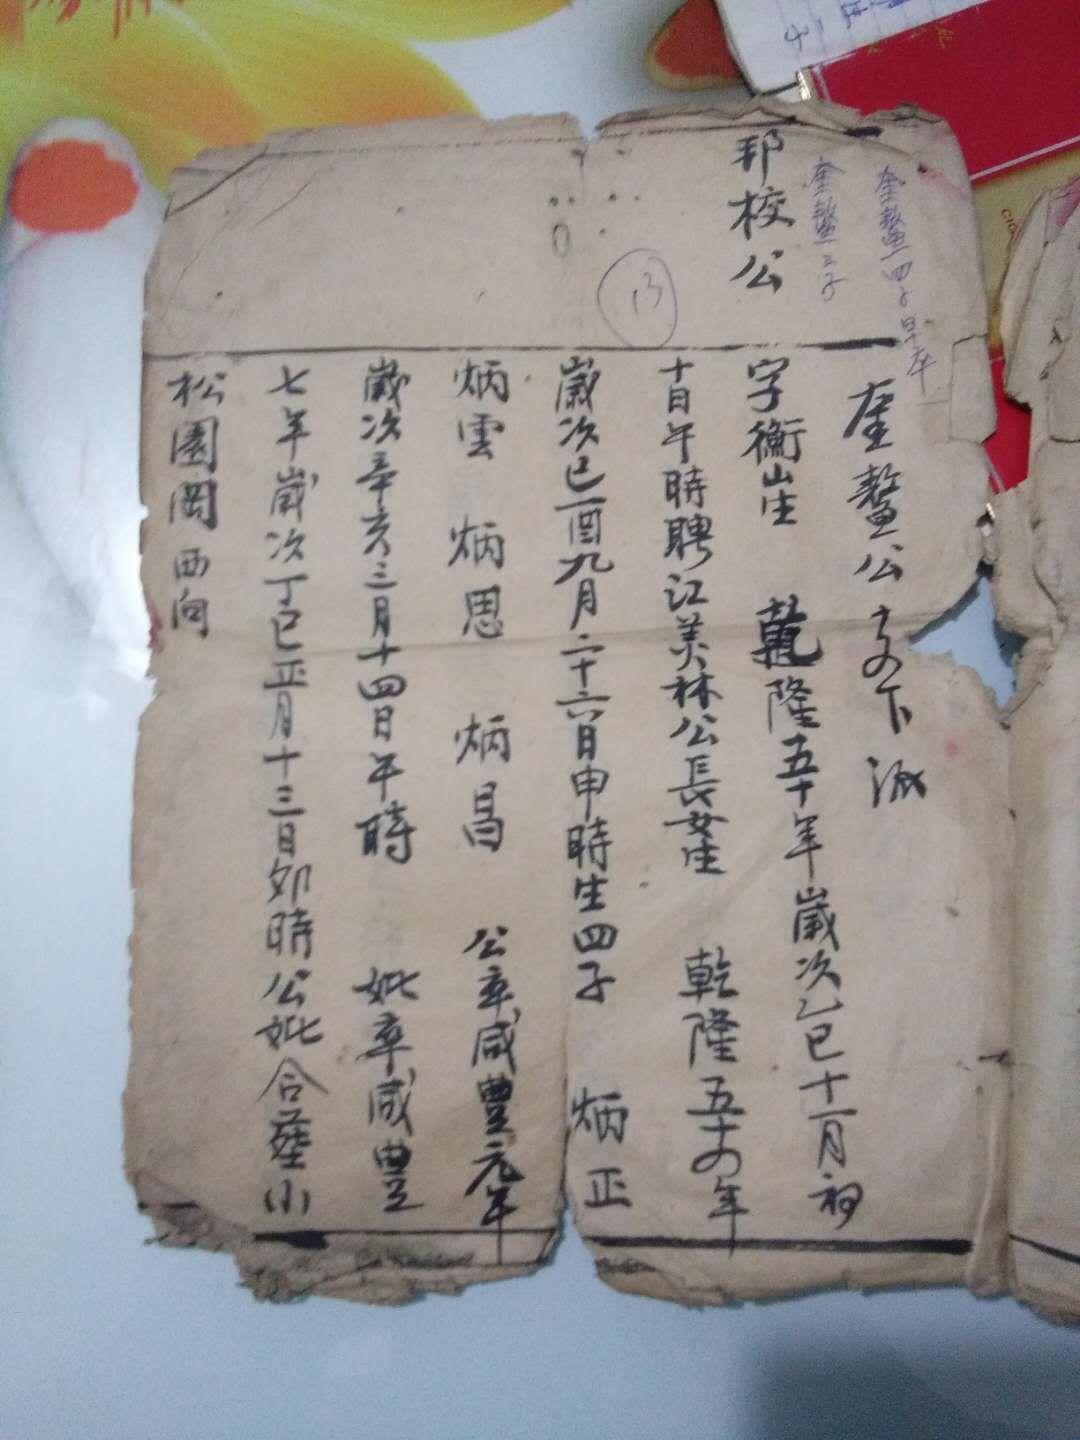 奎鰲四子早卒
奎鰲三子
邦校公
13
奎鰲公支下派
字衡山生 乾隆五十年歲次乙巳十一月初
十日午時聘江美林公長女生 乾隆五十四年
歲次己酉九月二十六日申時生四子 炳正
炳雲 炳思 炳昌 公卒咸豐元年
歲次辛亥三月十四日午時 妣卒咸豐
七年歲次丁巳正月十三日卯時公妣合塟小
松園岡西向